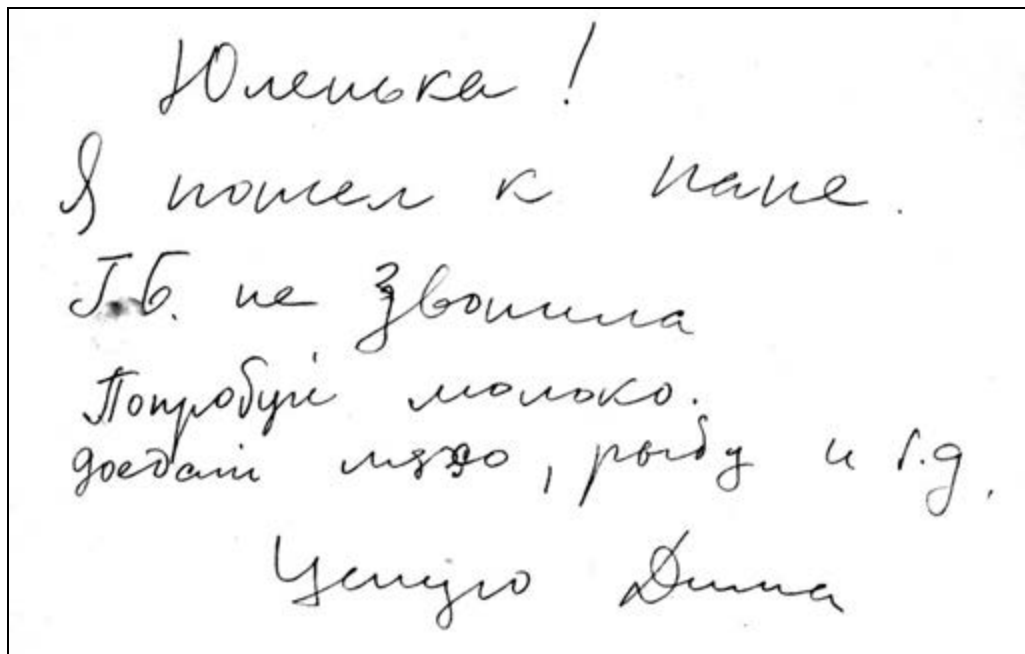 Юленька!
Я пошел к папе.
Т.Б. не звонила
Попробуй молоко.
доедай мясо, рыбу и т.д.
Целую Дима